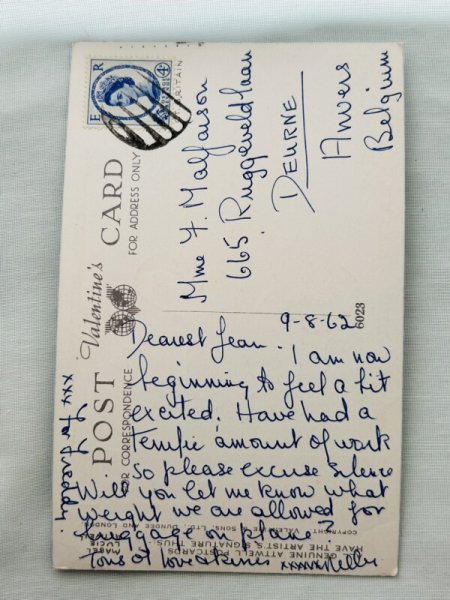 POST CARD
Valentine's
FOR CORRESPONDENCE
FOR ADDRESS ONLY
E R
4D
Mme F. Malfaison
665 Ruggeveldlaan
DEURNE
Anvers
Belgium
6023
9-8-62
Dearest Jean. I am now
beginning to feel a bit
excited. Have had a
terrific amount of work
so please excuse silence
Will you let me know what
weight we are allowed for
luggage on plane?
Tons of love & kisses xxxxx Nelly
xxx for Freddy.
ALL GENUINE ATTWELL POSTCARDS
HAVE THE ARTIST'S SIGNATURE THUS:
MABEL
LUCIE
COPYRIGHT VALENTINE & SONS, LTD., DUNDEE AND LONDON